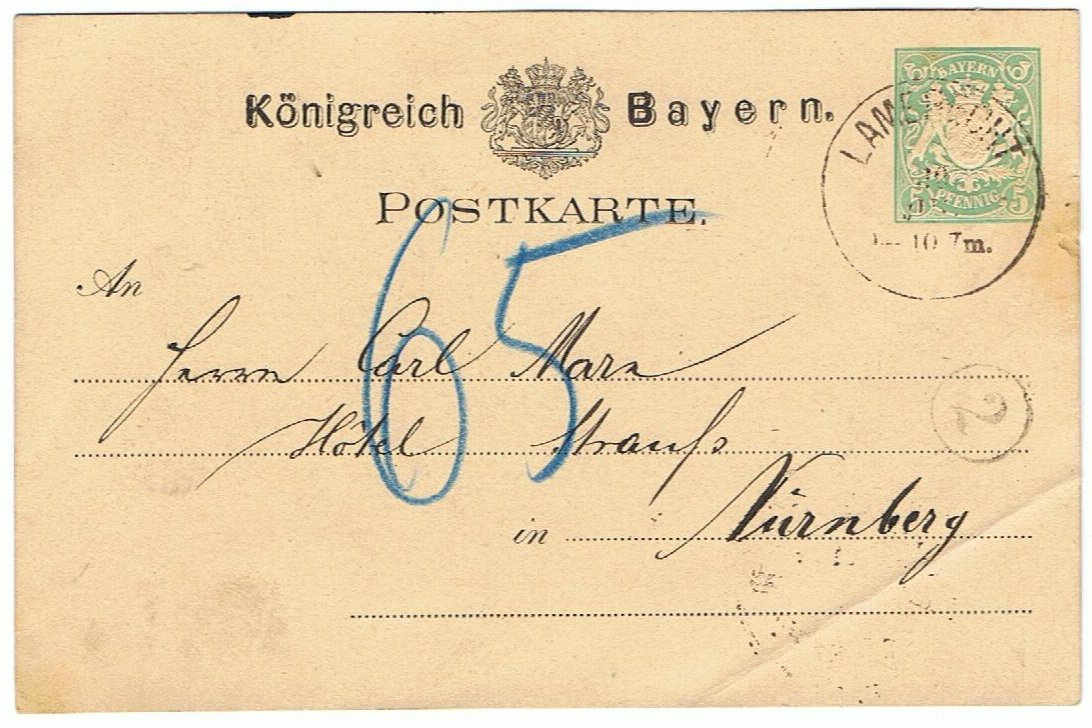 Königreich Bayern.
BAYERN
5 5
PFENNIG
5 5
POSTKARTE.
10 7m.
65
An
Herrn Carl Marx
Hôtel Strauß
2
in Nürnberg